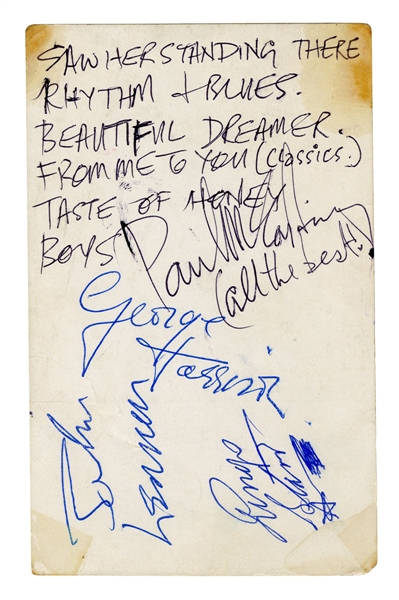 SAW HER STANDING THERE
RHYTHM + BLUES.
BEAUTIFUL DREAMER.
FROM ME TO YOU (CLASSICS.)
TASTE OF HONEY
BOYS
Paul McCartney
(all the best!)
George
Harrison
John
Lennon
Ringo
Starr